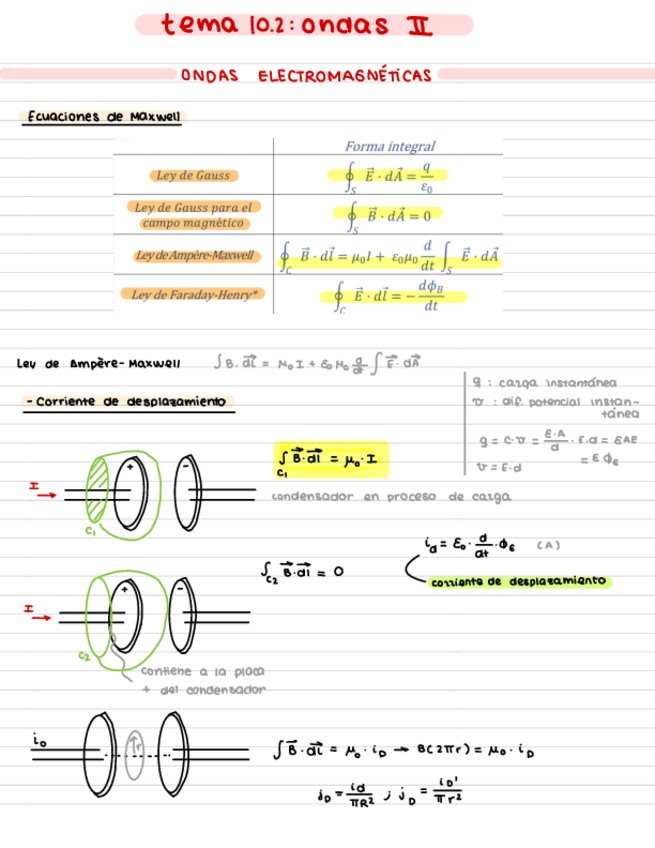 tema 10.2: ondas II
ONDAS ELECTROMAGNÉTICAS
Ecuaciones de Maxwell
Forma integral
Ley de Gauss ∮_S E⃗ · dA⃗ = q/ε₀
Ley de Gauss para el
campo magnético ∮_S B⃗ · dA⃗ = 0
Ley de Ampère-Maxwell ∮_C B⃗ · dl⃗ = μ₀I + ε₀μ₀ d/dt ∫_S E⃗ · dA⃗
Ley de Faraday-Henry* ∮_C E⃗ · dl⃗ = − dϕ_B/dt
Ley de Ampère-Maxwell ∫B · dl⃗ = μ₀ I + ε₀ μ₀ d/dt ∫E⃗ · dA⃗
- Corriente de desplazamiento
q : carga instantánea
v : dif. potencial instan-
tánea
q = C·v = ε·A/d · E·d = εAE
= ε ϕ_E
v = E·d
∫_C₁ B⃗·dl⃗ = μ₀ · I
condensador en proceso de carga
I
+
-
C₁
i_d = ε₀ · d/dt · ϕ_E (A)
corriente de desplazamiento
∫_C₂ B⃗·dl⃗ = 0
I
+
-
C₂
contiene a la placa
+ del condensador
i_D
r
∫B⃗·dl⃗ = μ₀ · i_D → B(2πr) = μ₀ · i_D
j_D = i_d/πR² ; j_D = i_D'/πr²